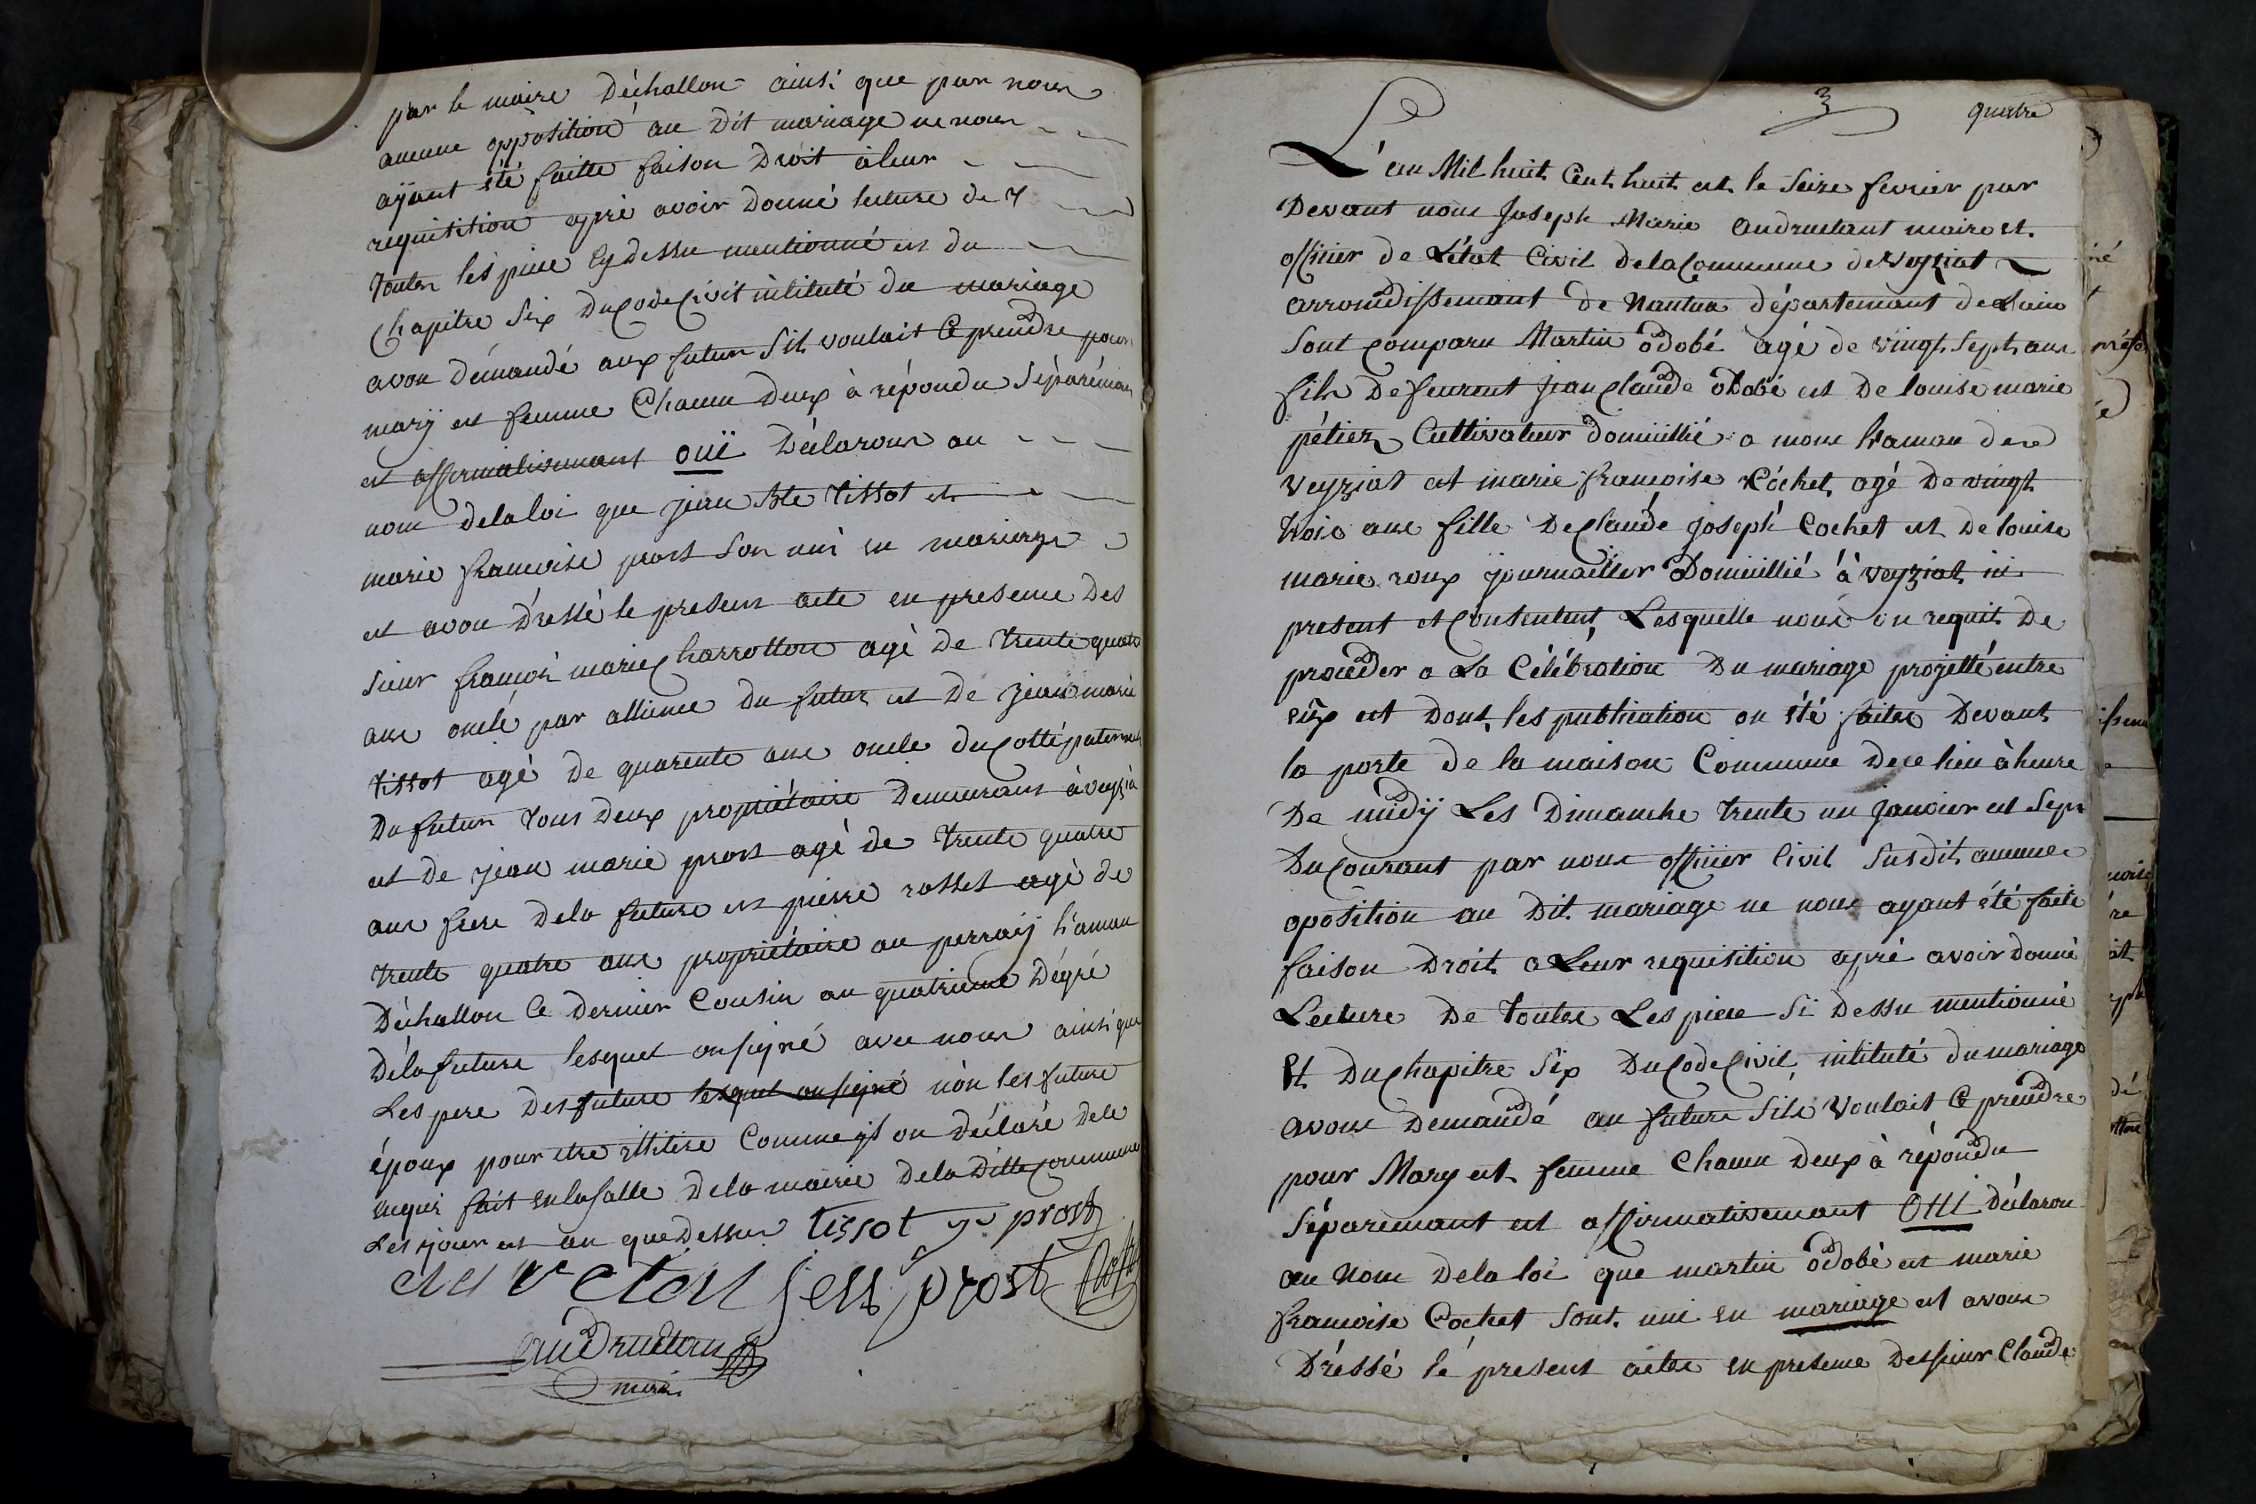 par le maire Déchallon ainsi que par nous
aucune opposition au Dit mariage ne nous
ayant été faitte faison Droit à leur
requisition aprè avoir Donné lecture de
toutes les piece Cy dessu mentionné et du
Chapitre Six Du Code Civil intitulé du mariage
avon démandé aux futur Sil voulait Ce prendre pour
mary et femme Chacun Deux à répondu Séparéman
et affirmativemant ouï Déclarons au
nom dela loi que jean Bte tissot et
marie francoise prost Son uni en mariage
et avon Dréssé le present acte en presence Des
Sieur françois marie Charrotton agé de trente quatre
ans oncle par alliance du futur et De jean marie
tissot agé de quarente ans oncle du Cotté paternel
Du futur tous Deux propriétaire Demeurant à veyzia
et De jean marie prost agé de trente quatre
ans frere Dela future et pierre rosset agé de
trente quatre ans propriétaire au perraij h'amau
Déchallon Ce Dernier Cousin au quatrieme Dégré
Déla future lesquel on signé avec nous ainsi que
Les pere Des future lesquel on signé nòn les future
époux pour etre illitire Comme ils on Déclaré Dele
enquis fait en la Salle Dela mairie Dela Ditte Commune
Les jour et an que Dessus tissot prost
jean prost
andructan
maire
3 quatre
L'an Mil huit Cent huit et le Seize fevrier par
Devant nous Joseph Marie andructant maire et
officier de L'état Civil Dela Commune de Veyziat
arrondissemant de Nantua départemant de Lain
Sont comparu Martin odobé agé de vingt Sept ans
fils De feurent jean Claude odobé et De louise marie
pétier Cultivateur domicillié a mons hamau de
Veyziat et marie françoise Cochet agé De vingt
trois ans fille De Claude joseph Cochet et De louise
marie roux journaillier Domicillié à veyziat ici
present et Consentent, Lesquelle nous on requit De
proceder a La Célébration Du mariage projetté entre
eux et Dont les publication on été faites Devant
la porte De la maison Commune De ce lieu à heure
De midÿ Les Dimanche trente un janvier et Sept
Du Courant par nous officier Civil Susdit aucune
oposition au Dit mariage ne nous ayant été faite
faison Droit a Leur requisition aprè avoir Donné
Lecture De toutes Les piece Si Dessu mentionné
Et Du Chapitre Six Du Code Civil intitulé du mariage
avons Demandé au future Sils Voulait Ce prendre
pour Mary et femme Chacun Deux à répondu
Séparemant et affirmativemant OUI Déclaron
au Nom Dela loi que martin odobé et marie
françoise Cochet Sont uni en mariage et avons
Dréssé lé present actes en presence Des Sieur Claude